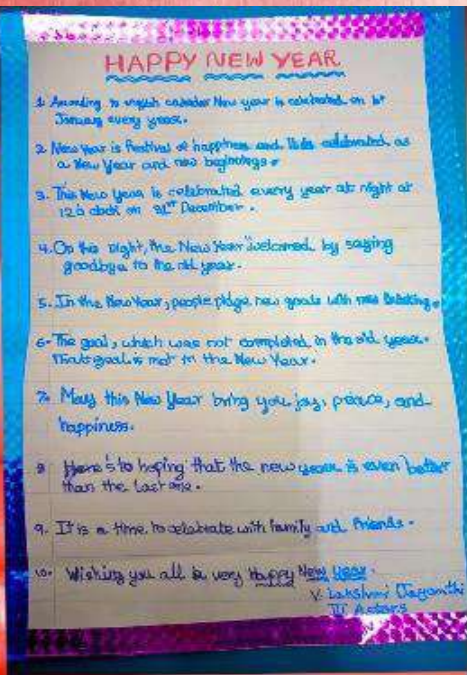 HAPPY NEW YEAR
1. According to english calender New year is celebrated on 1st
January every year.
2. New Year is Festival of happiness and It is celebrated as
a New Year and new beginings.
3. This New Year is celebrated every year at night at
12 o clock on 31st December.
4. On this night, the New Year welcomed by saying
goodbye to the old year.
5. In the New Year, people pldge new goals with new
6. The goal, which was not completed in the old year.
That goal is met in the New Year.
7. May this New Year bring you joy, peace, and
happiness.
8 Here's to hoping that the new year is even better
than the last one.
9. It is a time to celebrate with family and Friends.
10. Wishing you all a very Happy New Year.
V. Lakshmi